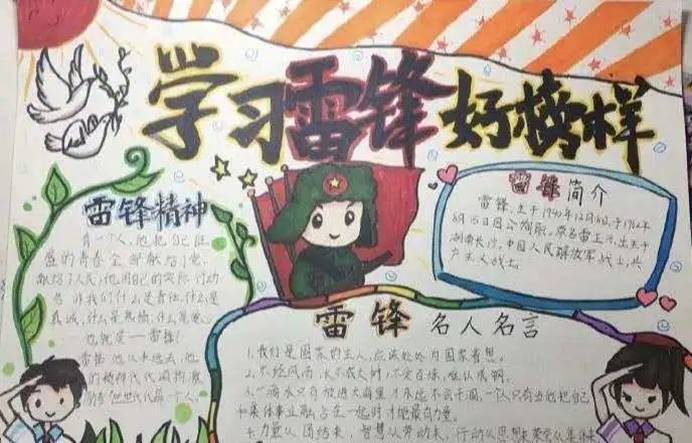 学习雷锋好榜样
雷锋精神
有一个人,他把自己旺
盛的青春全部献给了党,
献给了人民;他用自己的实际行动告
告诉我们什么是责任,什么是
真诚,什么是热情,什么是爱。
也就是一雷锋!
雷锋他从未远去,他
的精神代代
雷锋简介
雷锋,生于1940年12月18日,于1962年
8月15日因公殉职。原名雷正兴,出生于
湖南长沙,中国人民解放军战士,共
产主义战士。
雷锋名人名言
1.我们是国家的主人,应该处处为国家着想。
2.不经风雨,长不成大树;不受百炼,难以成钢。
3.一滴水只有放进大海里才永远不会干涸,一个人只有当他把自己
和集体事业融合在一起时才能最有力量。
4.力量从团结来,智慧从劳动来,行动从思想来,荣誉从集体